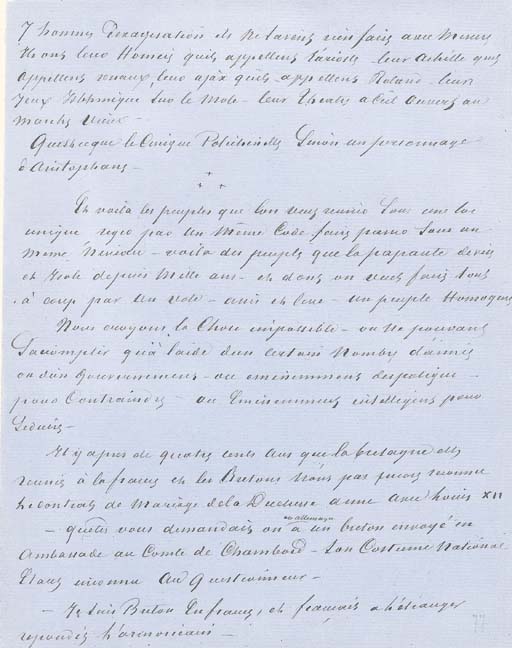 7 hommes d'exageration ils ne tarens rien fais avec Mercure
Ils ont leur Homere quils appellent l'arioste - leur Achille quils
appellent renaux, leur ajax quils appellent Roland - leurs
Jeux Isthmique sur le Mole - leur theatre a Ciel ouvert au
Marche vieux -
Quest ce que le Cinique Polichinelle sinon un personnage
d'Aristophane -
Eh voila les peuples que lon veut reunir sous une loi
unique regis par un Même Code faire passer sous un
Meme Niveau - voila des peuples que la papauté divise
et Isole depuis Mille ans - et dont on veut faire tout
à coup par un vote - unis et leur - un peuple Homogene
Nous croyons la Chose impossible - ou ne pouvant
Saccomplir qu'à laide dun certain Nombre dannées
ou dun Gouvernement - ou eminemment despotique -
pour Contraindre - ou Eminemment intelligent pour
Seduire -
Il y a pres de quatre cents ans que la bretagne est
reunie à la france et les Bretons n'ont pas encore reconnu
le contrat de Mariage de la Duchesse anne avec Louis XII
- quetes vous demandait on en allemagne à un breton envoyé en
Ambassade au Comte de Chambord - Son Costume National
Etant inconnu au questionneur -
- Je suis Breton En france, et français a l'étranger
repondit l'armoricain -
77